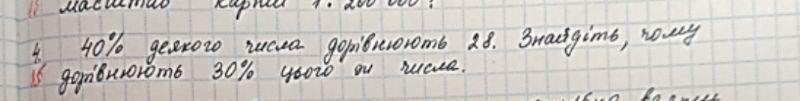 масштаб карти 1: 200 000?
4. 40% деякого числа дорівнюють 28. Знайдіть, чому
15 дорівнюють 30% цього ж числа.